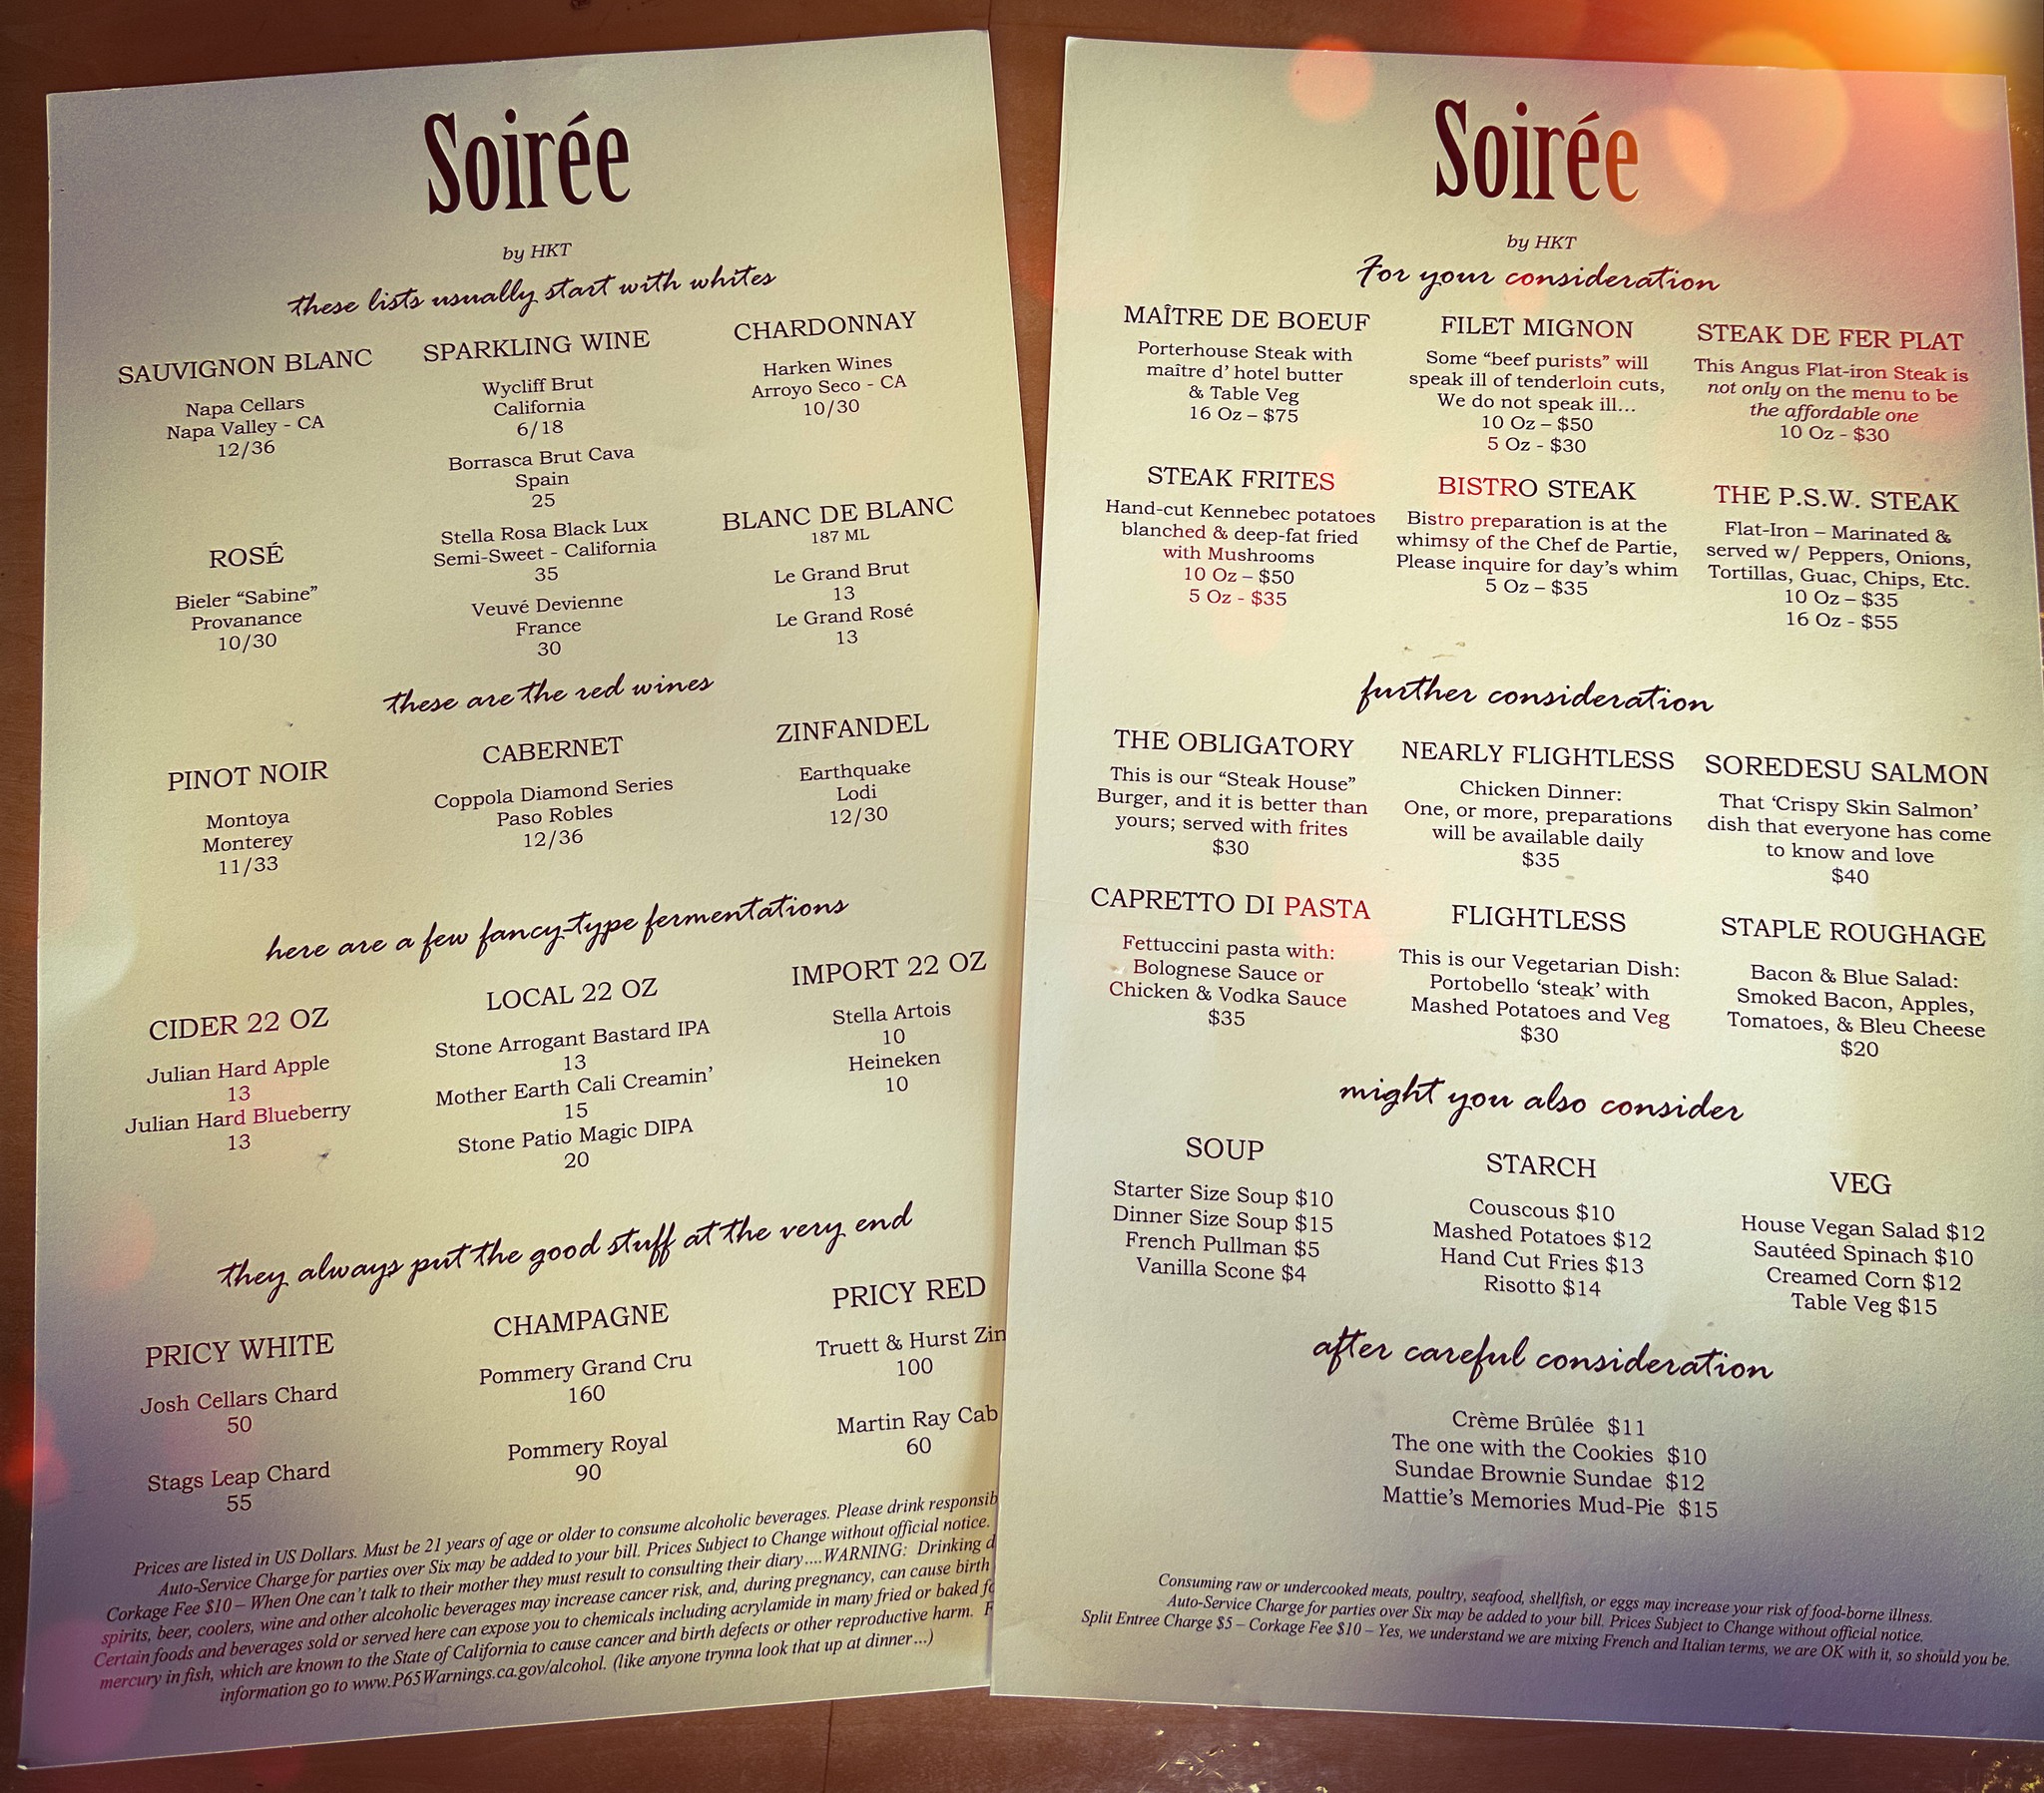 Soirée
by HKT
these lists usually start with whites
SAUVIGNON BLANC
Napa Cellars
Napa Valley - CA
12/36
SPARKLING WINE
Wycliff Brut
California
6/18
Borrasca Brut Cava
Spain
25
Stella Rosa Black Lux
Semi-Sweet - California
35
Veuvé Devienne
France
30
CHARDONNAY
Harken Wines
Arroyo Seco - CA
10/30
ROSÉ
Bieler “Sabine”
Provanance
10/30
BLANC DE BLANC
187 ML
Le Grand Brut
13
Le Grand Rosé
13
these are the red wines
PINOT NOIR
Montoya
Monterey
11/33
CABERNET
Coppola Diamond Series
Paso Robles
12/36
ZINFANDEL
Earthquake
Lodi
12/30
here are a few fancy-type fermentations
CIDER 22 OZ
Julian Hard Apple
13
Julian Hard Blueberry
13
LOCAL 22 OZ
Stone Arrogant Bastard IPA
13
Mother Earth Cali Creamin’
15
Stone Patio Magic DIPA
20
IMPORT 22 OZ
Stella Artois
10
Heineken
10
they always put the good stuff at the very end
PRICY WHITE
Josh Cellars Chard
50
Stags Leap Chard
55
CHAMPAGNE
Pommery Grand Cru
160
Pommery Royal
90
PRICY RED
Truett & Hurst Zin
100
Martin Ray Cab
60
Prices are listed in US Dollars. Must be 21 years of age or older to consume alcoholic beverages. Please drink responsib
Auto-Service Charge for parties over Six may be added to your bill. Prices Subject to Change without official notice.
Corkage Fee $10 – When One can’t talk to their mother they must result to consulting their diary....WARNING: Drinking d
spirits, beer, coolers, wine and other alcoholic beverages may increase cancer risk, and, during pregnancy, can cause birth
Certain foods and beverages sold or served here can expose you to chemicals including acrylamide in many fried or baked fo
mercury in fish, which are known to the State of California to cause cancer and birth defects or other reproductive harm. F
information go to www.P65Warnings.ca.gov/alcohol. (like anyone trynna look that up at dinner...)
Soirée
by HKT
For your consideration
MAÎTRE DE BOEUF
Porterhouse Steak with
maître d’ hotel butter
& Table Veg
16 Oz – $75
FILET MIGNON
Some “beef purists” will
speak ill of tenderloin cuts,
We do not speak ill…
10 Oz – $50
5 Oz - $30
STEAK DE FER PLAT
This Angus Flat-iron Steak is
not only on the menu to be
the affordable one
10 Oz - $30
STEAK FRITES
Hand-cut Kennebec potatoes
blanched & deep-fat fried
with Mushrooms
10 Oz – $50
5 Oz - $35
BISTRO STEAK
Bistro preparation is at the
whimsy of the Chef de Partie,
Please inquire for day’s whim
5 Oz – $35
THE P.S.W. STEAK
Flat-Iron – Marinated &
served w/ Peppers, Onions,
Tortillas, Guac, Chips, Etc.
10 Oz – $35
16 Oz - $55
further consideration
THE OBLIGATORY
This is our “Steak House”
Burger, and it is better than
yours; served with frites
$30
NEARLY FLIGHTLESS
Chicken Dinner:
One, or more, preparations
will be available daily
$35
SOREDESU SALMON
That ‘Crispy Skin Salmon’
dish that everyone has come
to know and love
$40
CAPRETTO DI PASTA
Fettuccini pasta with:
Bolognese Sauce or
Chicken & Vodka Sauce
$35
FLIGHTLESS
This is our Vegetarian Dish:
Portobello ‘steak’ with
Mashed Potatoes and Veg
$30
STAPLE ROUGHAGE
Bacon & Blue Salad:
Smoked Bacon, Apples,
Tomatoes, & Bleu Cheese
$20
might you also consider
SOUP
Starter Size Soup $10
Dinner Size Soup $15
French Pullman $5
Vanilla Scone $4
STARCH
Couscous $10
Mashed Potatoes $12
Hand Cut Fries $13
Risotto $14
VEG
House Vegan Salad $12
Sautéed Spinach $10
Creamed Corn $12
Table Veg $15
after careful consideration
Crème Brûlée $11
The one with the Cookies $10
Sundae Brownie Sundae $12
Mattie’s Memories Mud-Pie $15
Consuming raw or undercooked meats, poultry, seafood, shellfish, or eggs may increase your risk of food-borne illness.
Auto-Service Charge for parties over Six may be added to your bill. Prices Subject to Change without official notice.
Split Entree Charge $5 – Corkage Fee $10 – Yes, we understand we are mixing French and Italian terms, we are OK with it, so should you be.